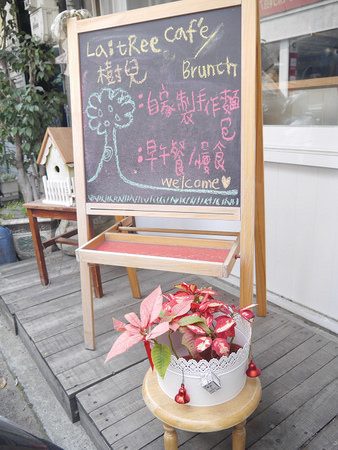 LaitRee Café
樹兒 Brunch
:自家製手作麵包
:早午餐/慢食
welcome